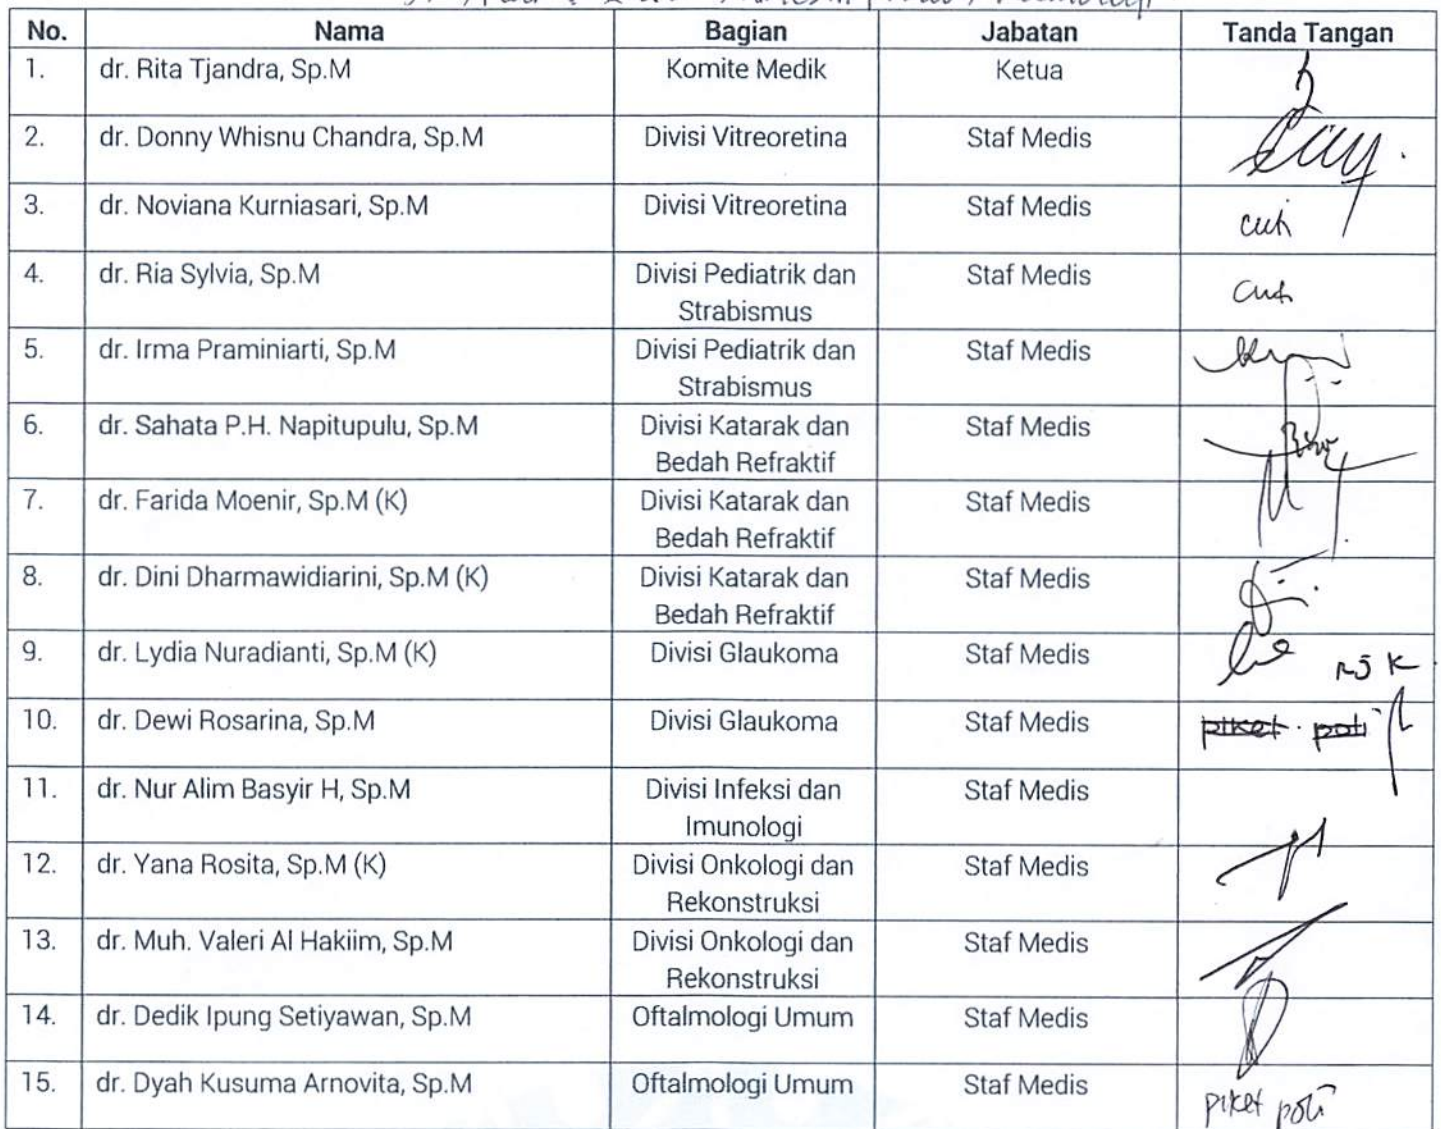 No. Nama Bagian Jabatan Tanda Tangan
1. dr. Rita Tjandra, Sp.M Komite Medik Ketua
2. dr. Donny Whisnu Chandra, Sp.M Divisi Vitreoretina Staf Medis
3. dr. Noviana Kurniasari, Sp.M Divisi Vitreoretina Staf Medis cuti
4. dr. Ria Sylvia, Sp.M Divisi Pediatrik dan Staf Medis cuti
Strabismus
5. dr. Irma Praminiarti, Sp.M Divisi Pediatrik dan Staf Medis
Strabismus
6. dr. Sahata P.H. Napitupulu, Sp.M Divisi Katarak dan Staf Medis
Bedah Refraktif
7. dr. Farida Moenir, Sp.M (K) Divisi Katarak dan Staf Medis
Bedah Refraktif
8. dr. Dini Dharmawidiarini, Sp.M (K) Divisi Katarak dan Staf Medis
Bedah Refraktif
9. dr. Lydia Nuradianti, Sp.M (K) Divisi Glaukoma Staf Medis
10. dr. Dewi Rosarina, Sp.M Divisi Glaukoma Staf Medis piket poli
11. dr. Nur Alim Basyir H, Sp.M Divisi Infeksi dan Staf Medis
Imunologi
12. dr. Yana Rosita, Sp.M (K) Divisi Onkologi dan Staf Medis
Rekonstruksi
13. dr. Muh. Valeri Al Hakiim, Sp.M Divisi Onkologi dan Staf Medis
Rekonstruksi
14. dr. Dedik Ipung Setiyawan, Sp.M Oftalmologi Umum Staf Medis
15. dr. Dyah Kusuma Arnovita, Sp.M Oftalmologi Umum Staf Medis piket poli